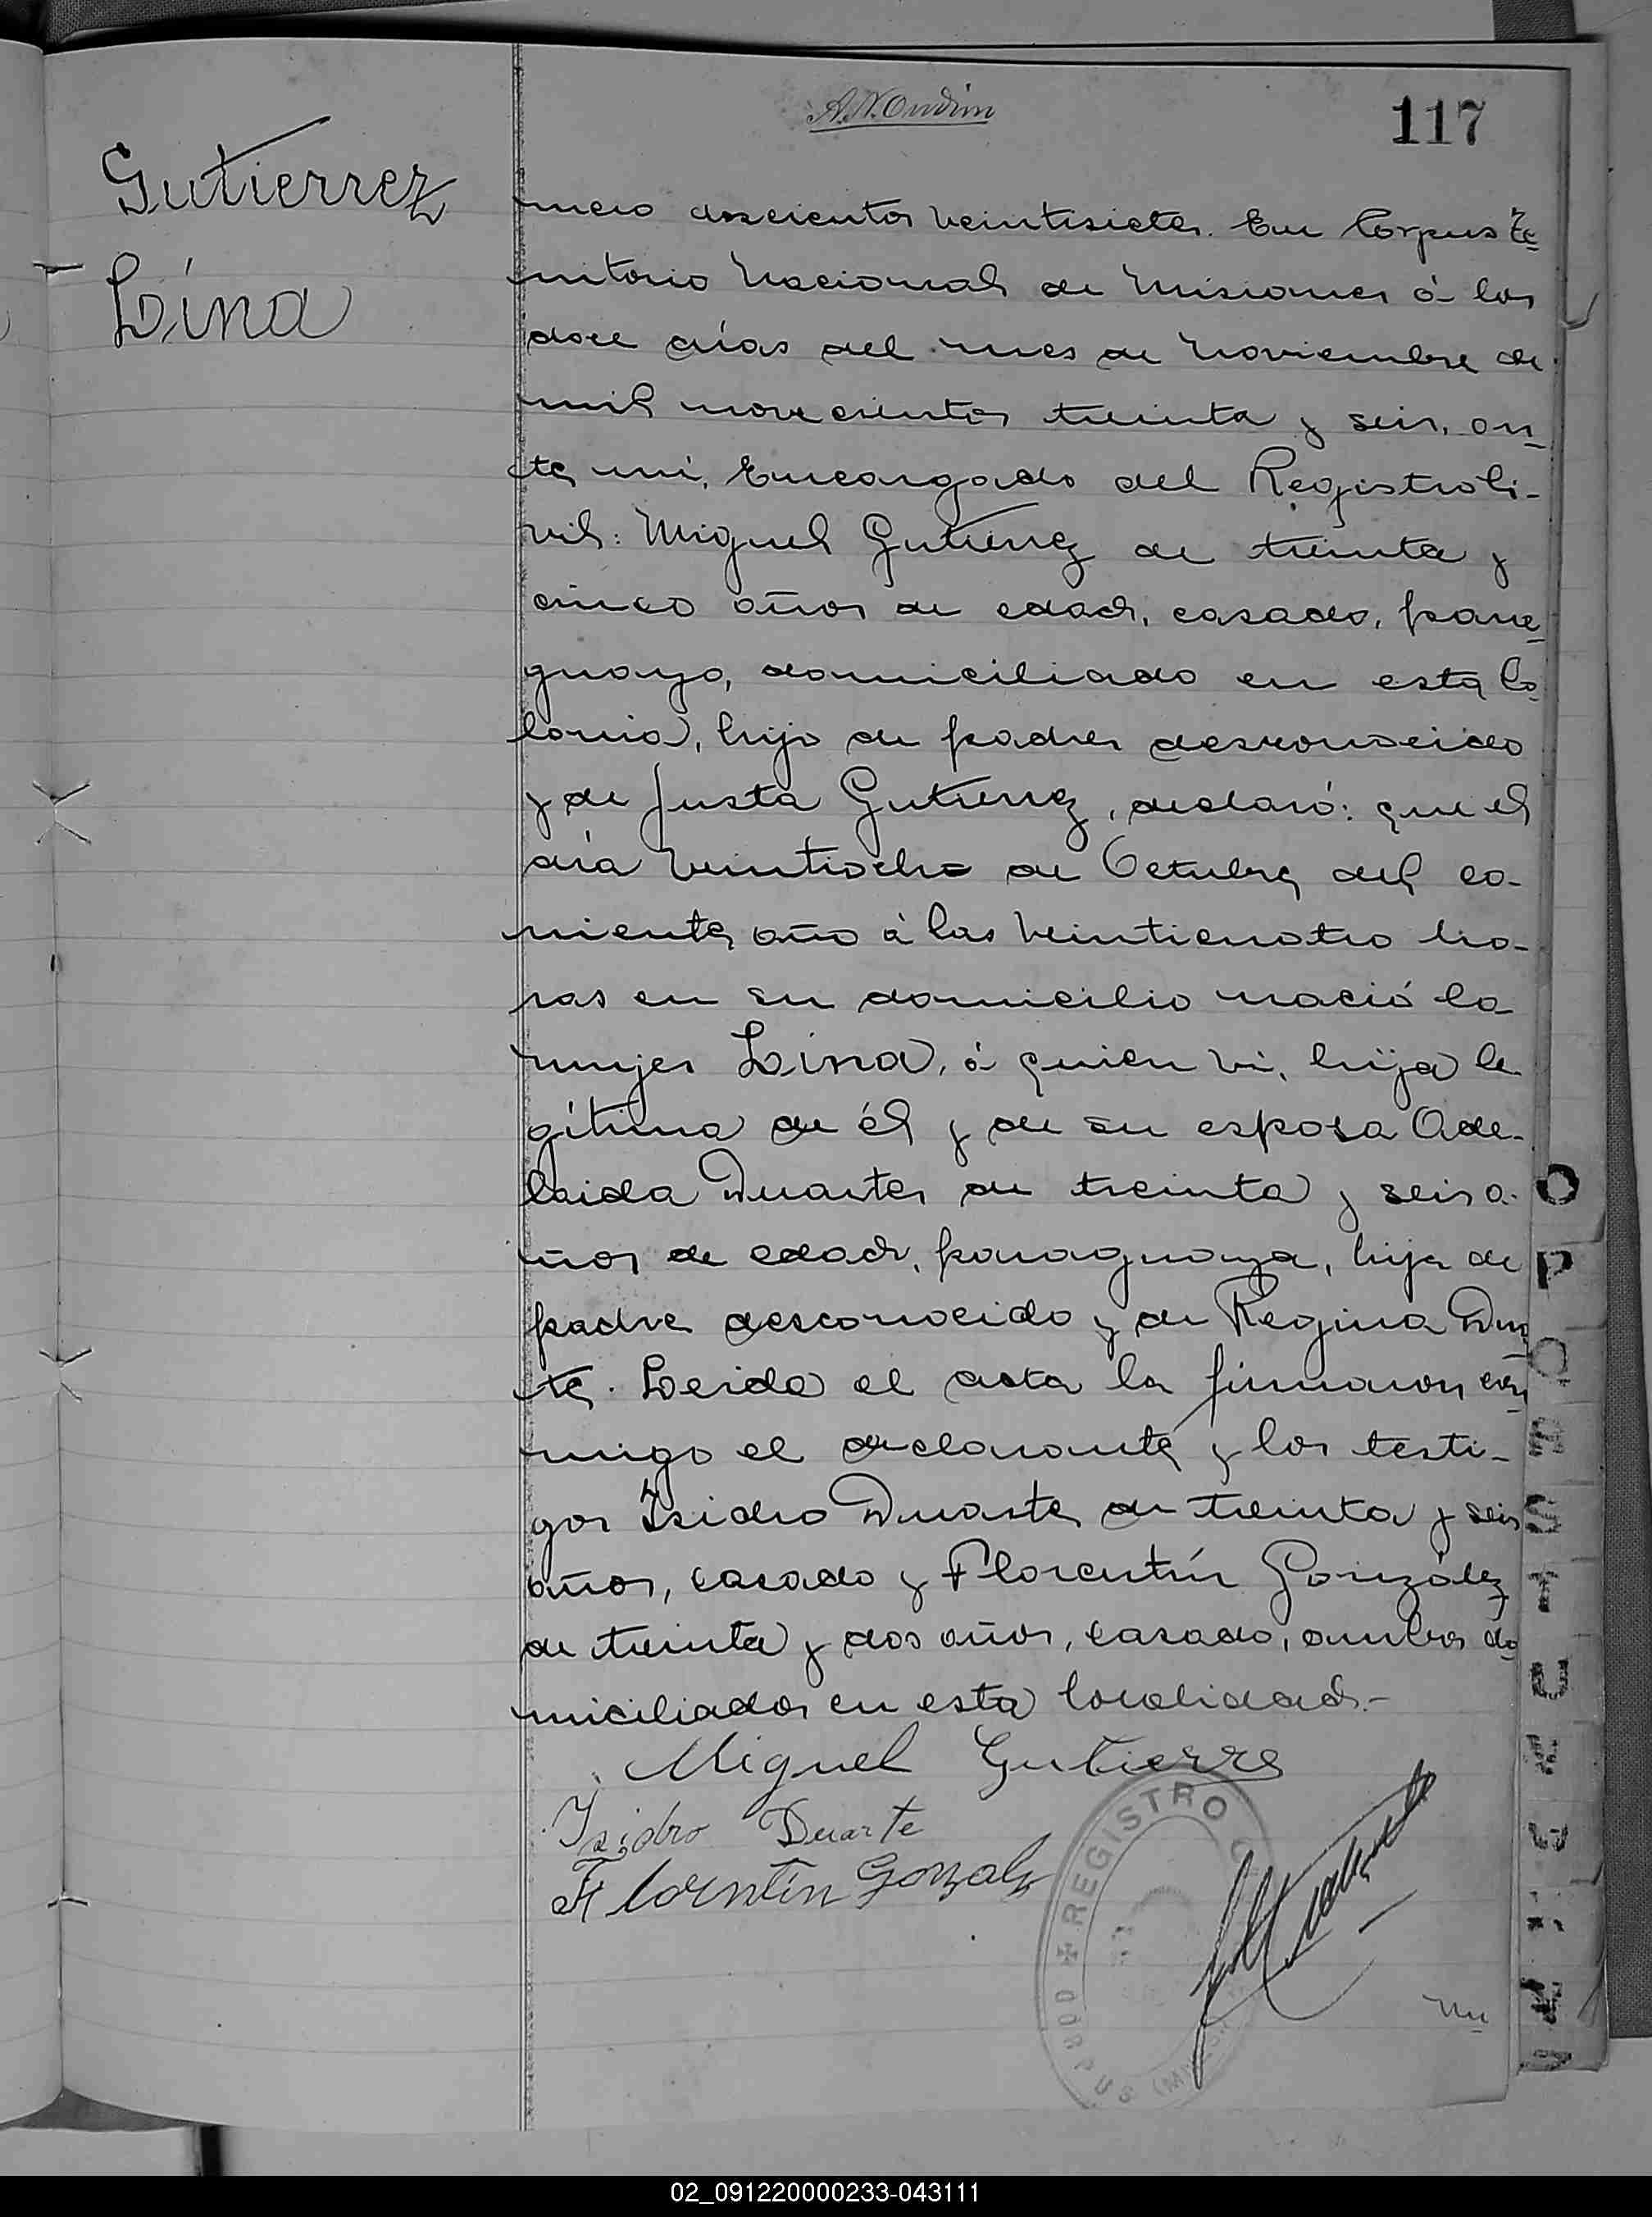 117
Gutierrez
Lina
mero doscientos veintisiete. En Corpus Te_
rritorio Nacional de Misiones á los
doce días del mes de Noviembre de
mil novecientos treinta y seis, an_
te mí, Encargado del Registro Ci-
vil: Miguel Gutierrez de treinta y
cinco años de edad, casado, para_
guayo, domiciliado en esta Co_
lonia, hijo de padre desconocido
y de Justa Gutierrez, declaró: que el
día veintiocho de Octubre del co-
rriente año á las veinticuatro ho-
ras en su domicilio nació la
mujer Lina, á quien vi, hija le
gítima de él y de su esposa Ade-
laida Duarte, de treinta y seis a-
ños de edad, paraguaya, hija de
padre desconocido y de Regina Duar_
te. Leida el acta la firmaron con_
migo el declarante y los testi-
gos Isidro Duarte, de treinta y seis
años, casado y Florentín González
de treinta y dos años, casado, ambos do_
miciliados en esta localidad.-
Miguel Gutierre
Isidro Duarte
Florentín Gonzalz
REGISTRO
CORPUS
Nu_
02_091220000233-043111